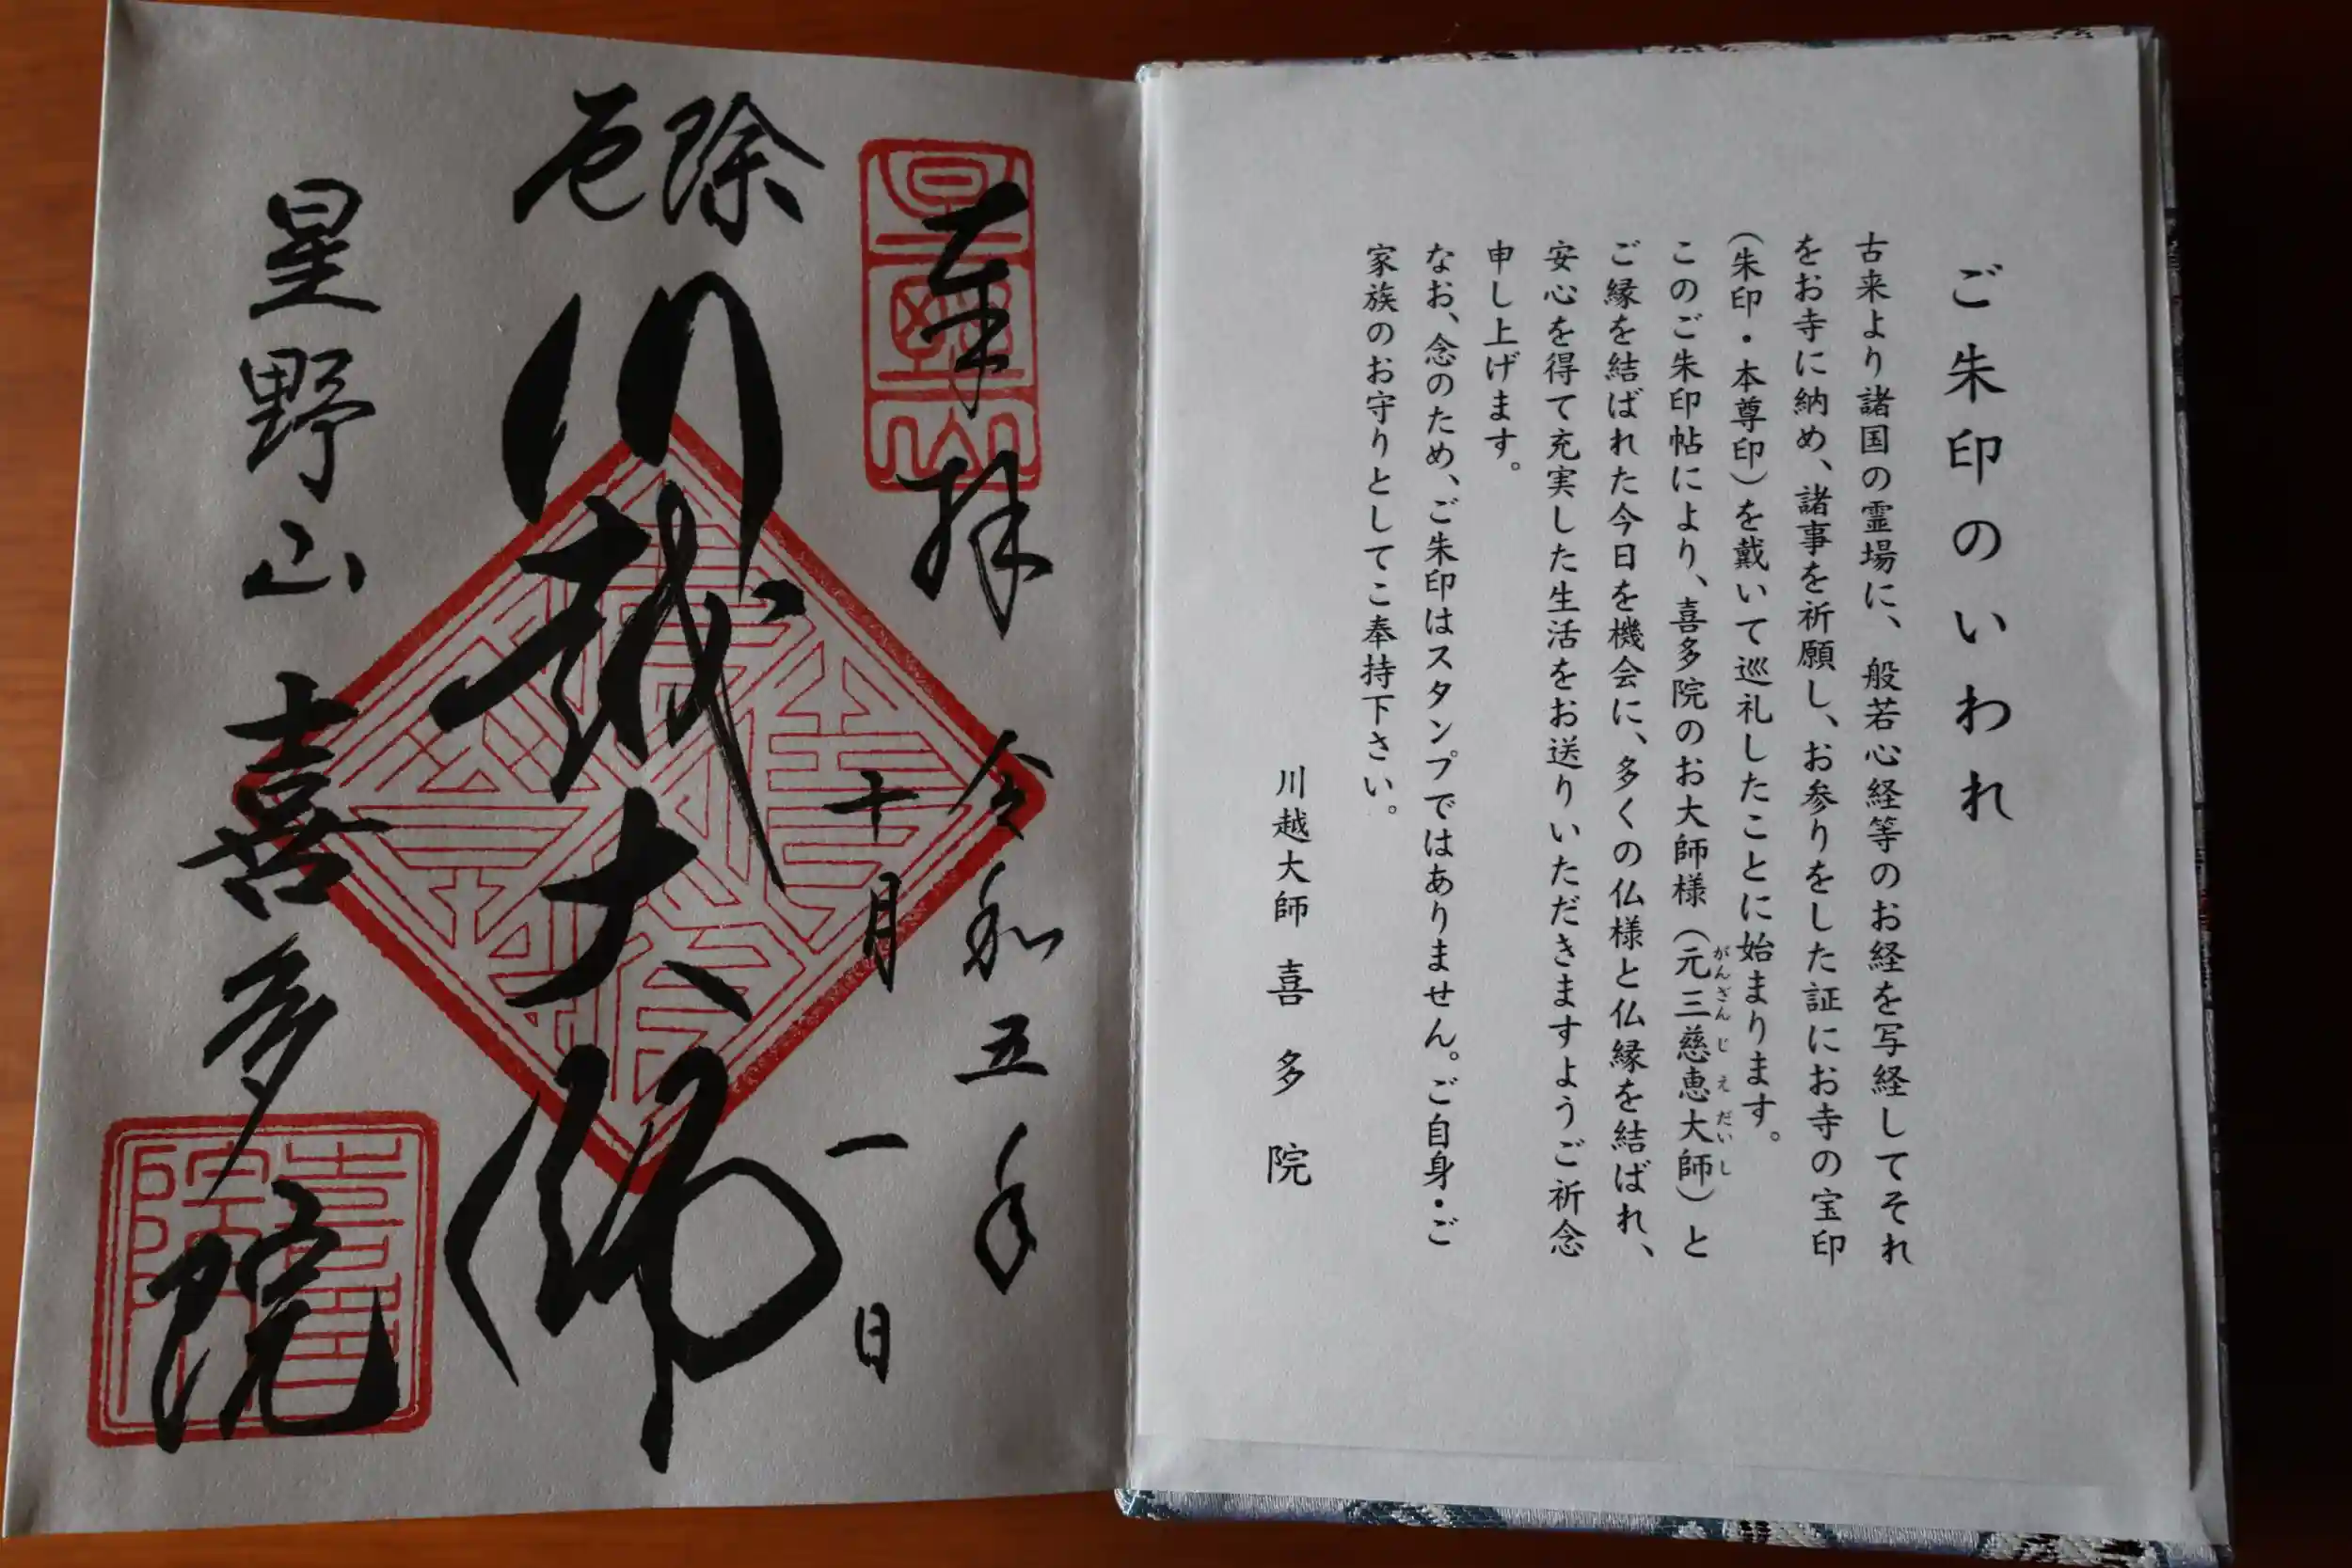 ご朱印のいわれ
古来より諸国の霊場に、般若心経等のお経を写経してそれ
をお寺に納め、諸事を祈願し、お参りをした証にお寺の宝印
(朱印・本尊印)を戴いて巡礼したことに始まります。
このご朱印帖により、喜多院のお大師様(元三慈恵大師)と
がんざんじえだいし
ご縁を結ばれた今日を機会に、多くの仏様と仏縁を結ばれ、
安心を得て充実した生活をお送りいただきますようご祈念
申し上げます。
なお、念のため、ご朱印はスタンプではありません。ご自身・ご
家族のお守りとしてご奉持下さい。
川越大師 喜多院
奉拝 令和五年
十月一日
厄除
川越大師
星野山 喜多院
星野山
喜多院